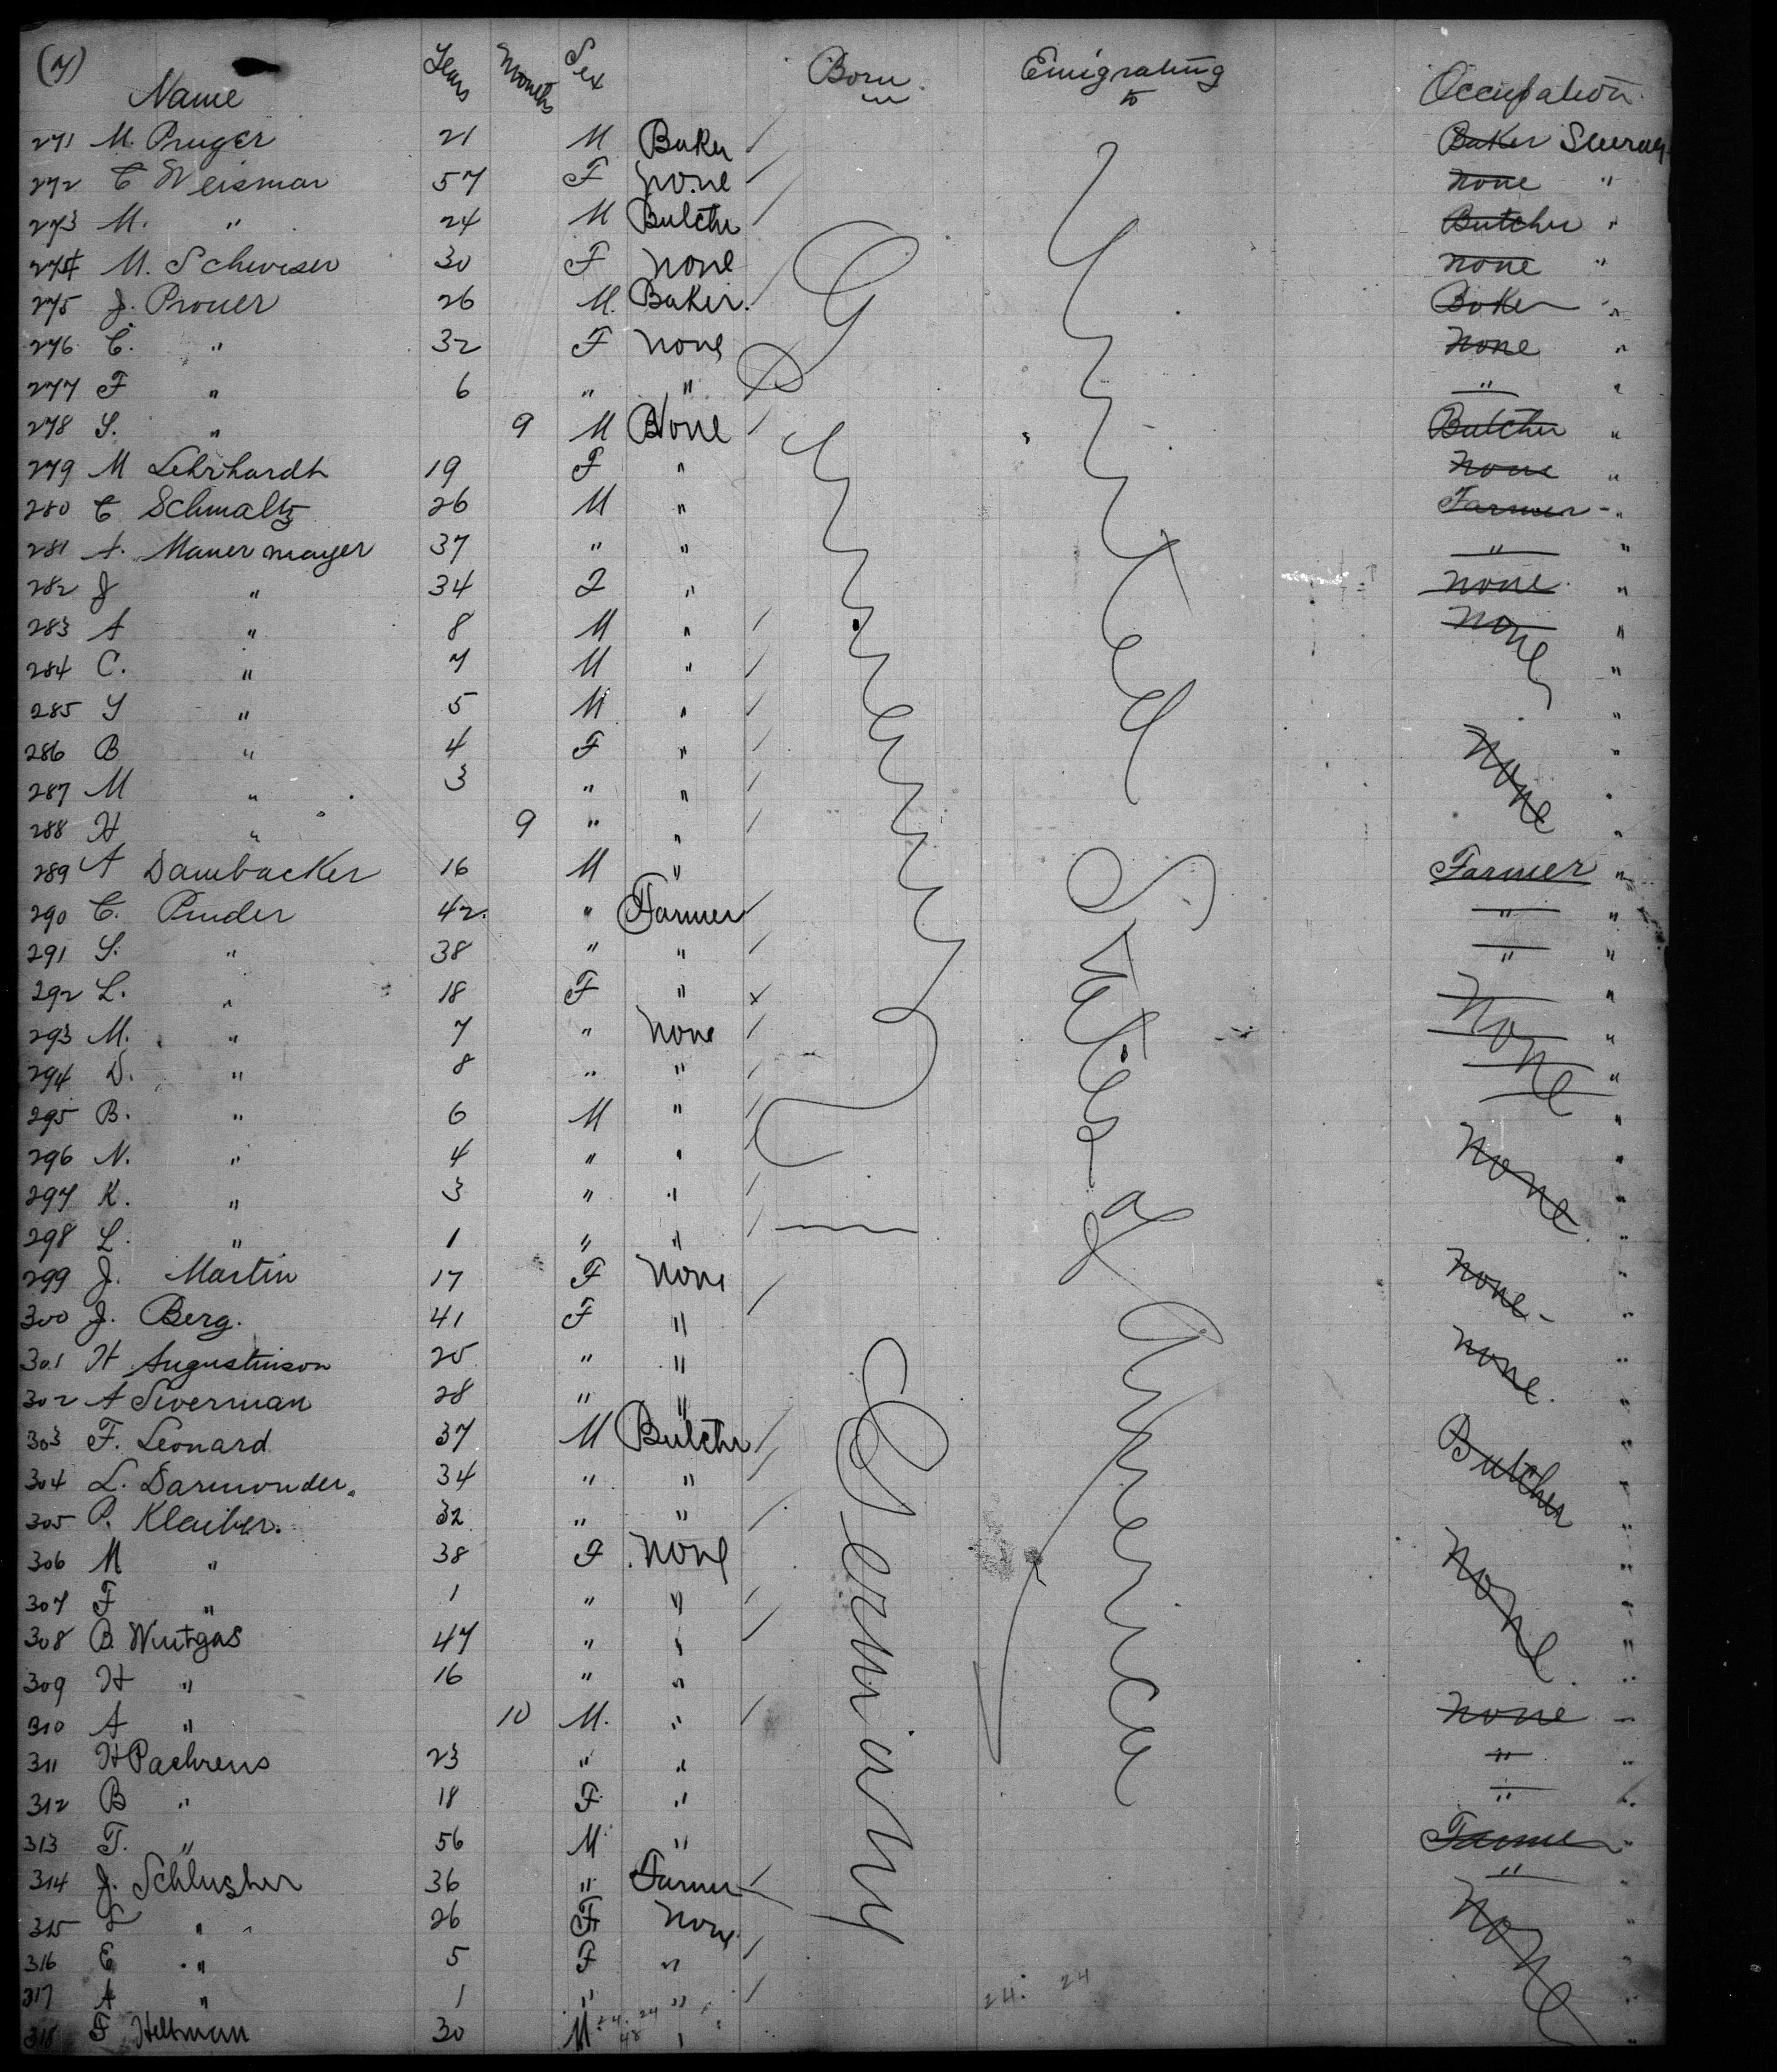 (7)
Name Years Months Sex Born in Emigrating to Occupation
271 M. Pruger 21 M Baker Baker
272 C Weismar 57 F none none "
273 M. " 24 M Butcher Butcher "
274 M. Schweiser 30 F none none "
275 J. Prouer 26 M. Baker Baker "
276 C. " 32 F none none "
277 F " 6 " " " "
278 S. " 9 M None Butcher "
279 M Lehrhardt 19 F " none "
280 C Schmaltz 26 M " Farmer "
281 A. Mauermayer 37 " " " "
282 J " 34 F " none "
283 A " 8 M " none "
284 C. " 7 M " "
285 S " 5 M " "
286 B " 4 F " "
287 M " 3 " " none "
288 H " 9 " " "
289 A Dambacker 16 M " Farmer "
290 C. Pruder 42 " Farmer " "
291 S. " 38 " " " "
292 L. " 18 F " "
293 M. " 7 " none none "
294 D. " 8 " " "
295 B. " 6 M " "
296 N. " 4 " " "
297 K. " 3 " " none "
298 L. " 1 " " "
299 J. Martin 17 F none none "
300 J. Berg. 41 F " "
301 H Augustinson 25 " " none "
302 A Siverman 28 " " "
303 F. Leonard 37 M Butcher Butcher "
304 L. Darmonder. 34 " " "
305 P. Klaiber. 32 " " "
306 M " 38 F none none "
307 F " 1 " " "
308 B. Wintgas 47 " " "
309 H " 16 " " "
310 A " 10 M. " none "
311 H Paehrens 23 " " " "
312 B " 18 F " " "
313 T. " 56 M " Farmer "
314 J. Schlusher 36 " Farmer " "
315 L " 26 F none none "
316 E " 5 F " "
317 A " 1 " " "
318 F Hellman 30 M " "
Germany
Germany
United States of America
24. 24
48
24. 24